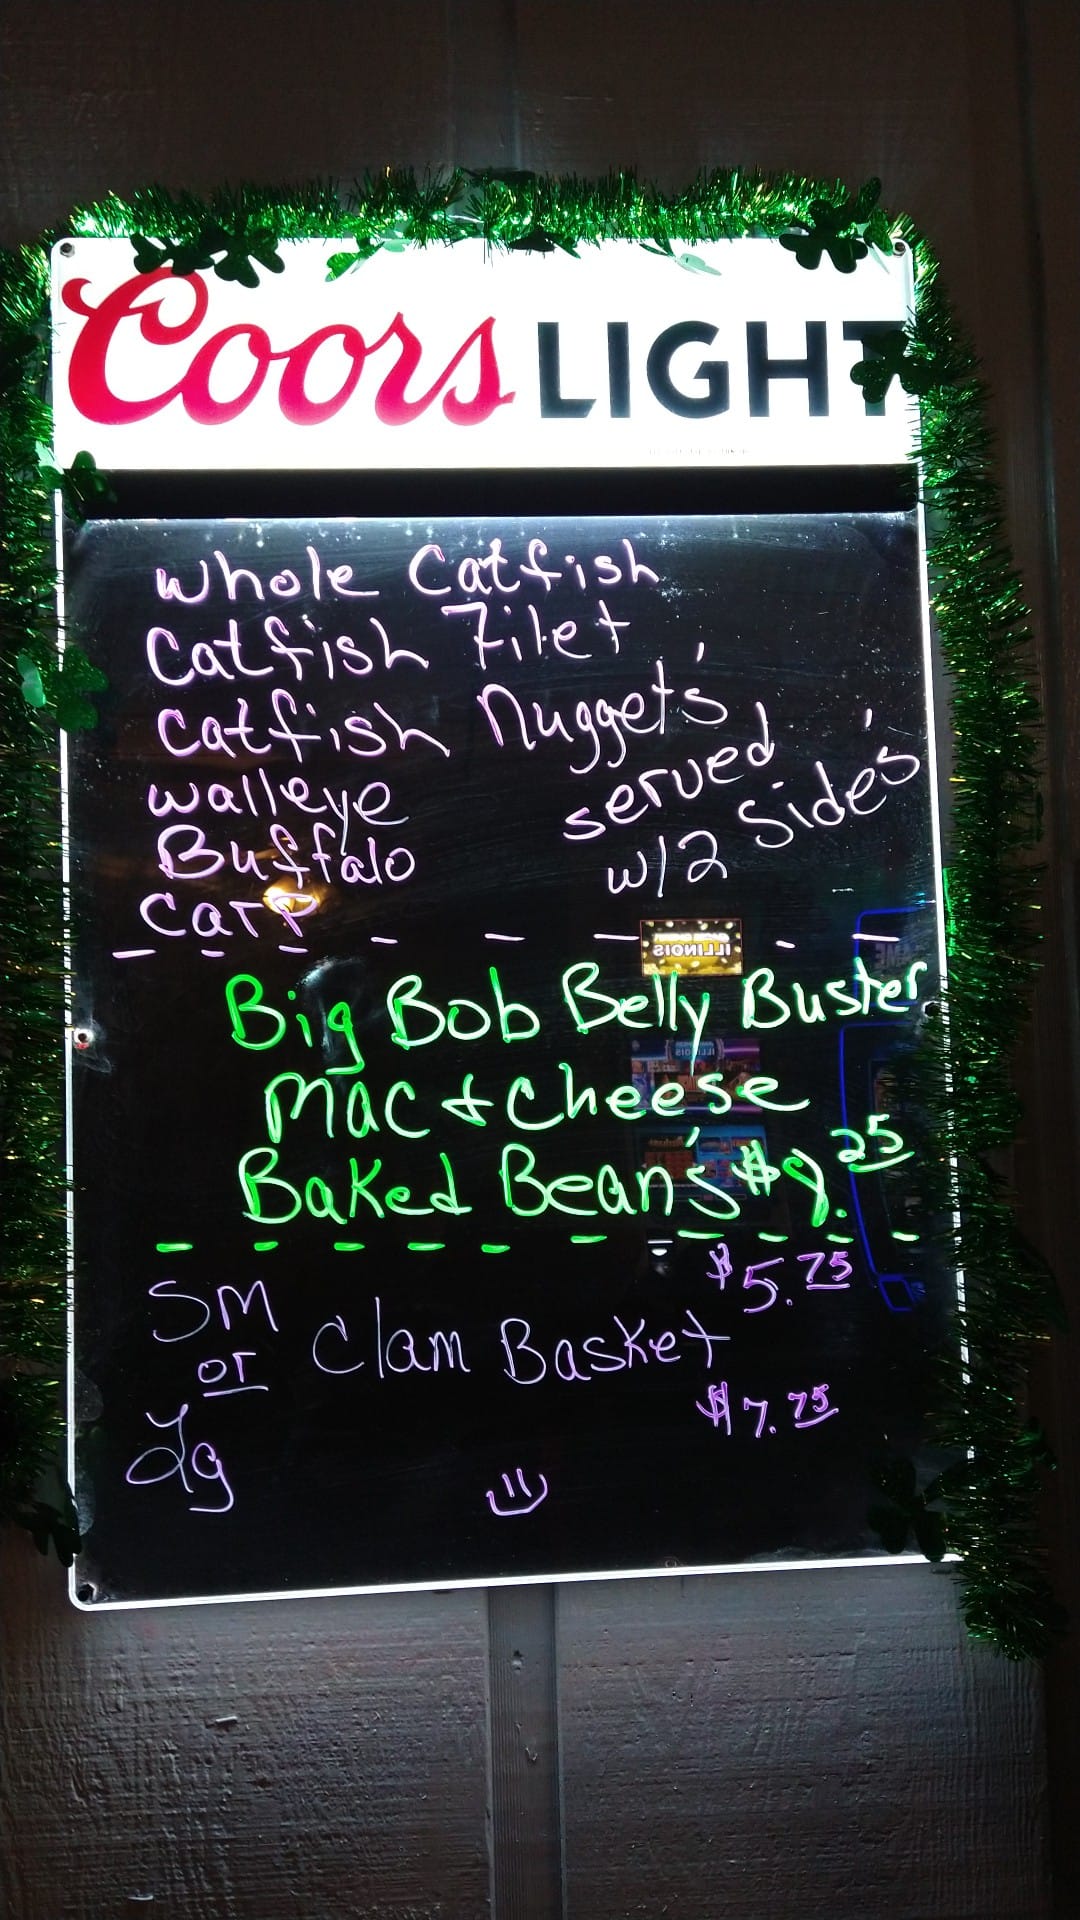 Coors LIGHT
Whole Catfish
Catfish Filet
Catfish Nugget's
walleye
Buffalo
Carp
served
w/2 Side's
ILLINOIS
Big Bob Belly Buster
Mac & Cheese
Baked Bean's $9.25
SM
or
Lg
Clam Basket
$5.75
$7.75